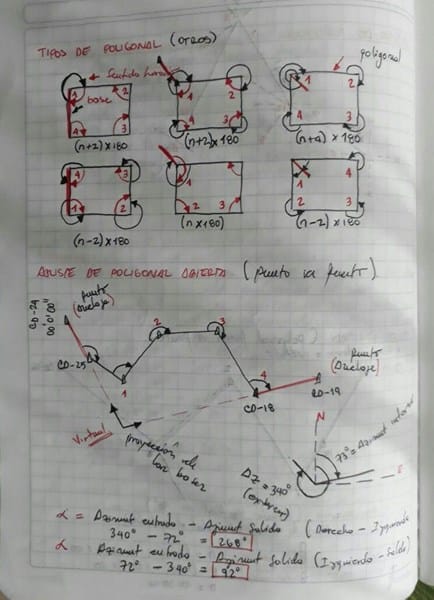 TIPOS DE POLIGONAL (OTROS)
poligonal
base
1 2 3 4
1 2 3 4
1 2 3 4
(n+2) x 180
(n+2) x 180
(n+4) x 180
4 3 2 1
1 2 3
1 4 3 2
(n-2) x 180
(n x 180)
(n-2) x 180
AJUSTE DE POLIGONAL ABIERTA (punto a punto).
CD-29
00°0'00"
punto
CD-25
1
2
3
4
CD-18
CD-19
punto
Virtual
proyección de
las bases
N
E
73° = Azimut
Az = 340°
α = Azimut entrada - Azimut Salida (Derecha - Izquierda
340° - 72° = 268°
α Azimut entrada - Azimut Salida (Izquierda -
72° - 340° = 92°